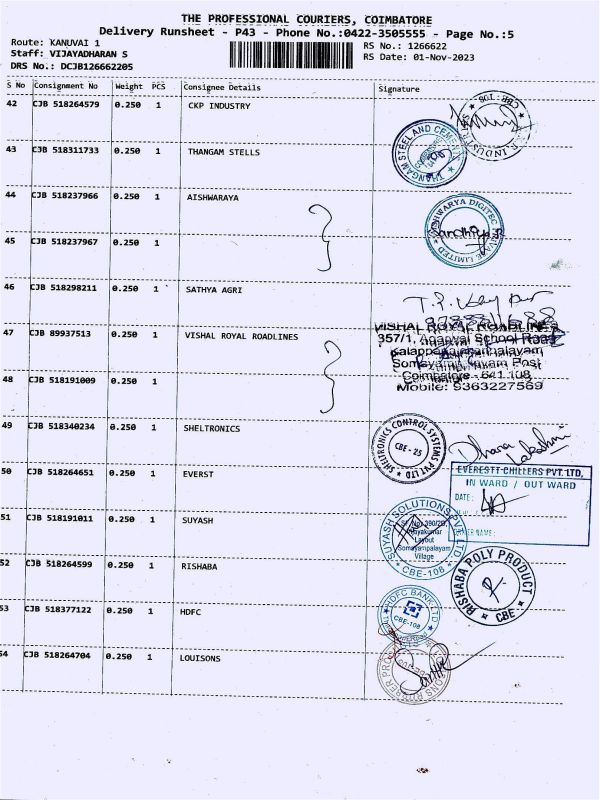 THE PROFESSIONAL COURIERS, COIMBATORE
Delivery Runsheet - P43 - Phone No.:0422-3505555 - Page No.:5
Route: KANUVAI 1
Staff: VIJAYADHARAN S
DRS No.: DCJB126662205
RS No.: 1266622
RS Date: 01-Nov-2023
S No Consignment No Weight PCS Consignee Details Signature
42 CJB 518264579 0.250 1 CKP INDUSTRY
43 CJB 518311733 0.250 1 THANGAM STELLS
THANGAM STEEL AND CEMENT
44 CJB 518237966 0.250 1 AISHWARAYA
Sandhiya
45 CJB 518237967 0.250 1
46 CJB 518298211 0.250 1 SATHYA AGRI
47 CJB 89937513 0.250 1 VISHAL ROYAL ROADLINES
VISHAL ROYAL ROADLINES
357/1, Agarwal School Road
Kalappanaickenpalayam
Somayampalayam Post
Coimbatore - 641 108
Mobile: 9363227569
48 CJB 518191009 0.250 1
49 CJB 518340234 0.250 1 SHELTRONICS
SHELTRONICS CONTROL SYSTEMS PVT LTD
CBE - 25
Dhana Lakshmi
50 CJB 518264651 0.250 1 EVERST
EVERESTT CHILLERS PVT. LTD,
IN WARD / OUT WARD
DATE :
51 CJB 518191011 0.250 1 SUYASH
SUYASH SOLUTIONS PVT LTD
Layout
Somayampalayam
Village
CBE-108
52 CJB 518264599 0.250 1 RISHABA
RISHABA POLY PRODUCT
CBE
53 CJB 518377122 0.250 1 HDFC
HDFC BANK LTD
CBE-108
54 CJB 518264704 0.250 1 LOUISONS